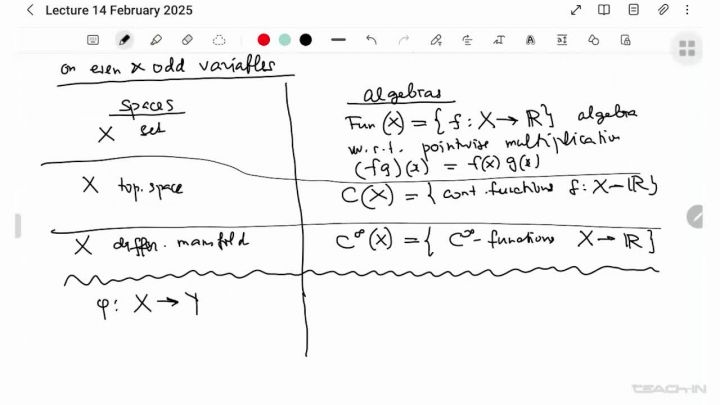 Lecture 14 February 2025
on even & odd variables
spaces
X set
algebras
Fun (X) = { f : X → ℝ } algebra
w.r.t. pointwise multiplication
(fg)(x) = f(x) g(x)
X top. space
C(X) = { cont. functions f : X → ℝ }
X differ. manifold
C^∞(X) = { C^∞- functions X → ℝ }
φ : X → Y
TEACH-IN